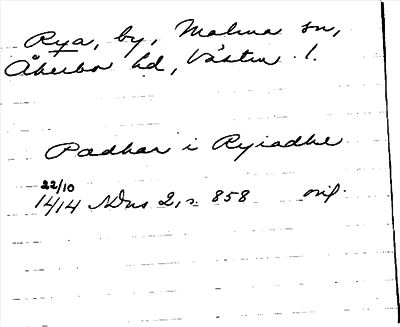 Rya, by, Malma sn,
Åkerbo hd, Västm. l.
Pædhar i Ryiadhe
22/10
1414 NDns 2, s. 858 orig.